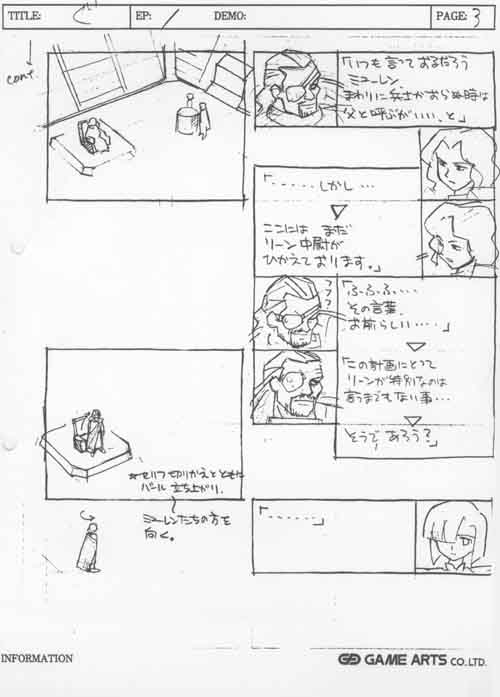 TITLE:
EP: /
DEMO:
PAGE: 3
cont
「いつも言っておるだろう
ミューレン、
まわりに兵士がおらぬ時は
父と呼ぶがいい、と」
「‥‥‥しかし‥
▽
ここには まだ
リーン中尉が
ひかえております。」
「ふふふ‥‥
その言葉、
お前らしい‥‥」
▽
「この計画にとって
リーンが特別なのは
言うまでもない事‥
▽
そうで、あろう?」
*セリフ切りかえとともに
バール 立ち上がり、
ミューレンたちの方を
向く。
「‥‥‥」
INFORMATION
GAME ARTS CO.,LTD.